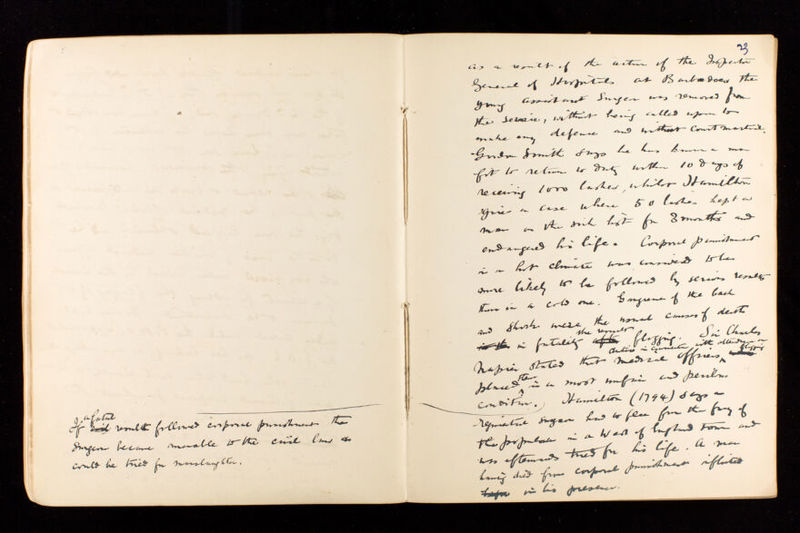 If a fatal result followed corporal punishment the
Surgeon became amenable to the civil law &
could be tried for manslaughter.
23
as a result of the action of the Inspector
General of Hospitals at Barbadoes the
young assistant Surgeon was removed from
the service, without being called upon to
make any defence and without Court martial.
Gordon Smith says he has known a man
fit to return to duty within 10 days of
receiving 1000 lashes, whilst Hamilton
gives a case where 50 lashes kept a
man on the sick list for 3 months and
endangered his life. Corporal punishment
in a hot climate was considered to be
more likely to be followed by serious results
than in a cold one. Gangrene of the back
and shock were the usual causes of death
in fatality the results flogging. Sir Charles
Napier stated that medical officers
duties in connection with attending flogging
placed them in a most unfair and perilous
condition. Hamilton (1794) says a
regimental surgeon had to flee from the fury of
the populace in a West of England town and
was afterwards tried for his life. A man
having died from corporal punishment inflicted
in his presence.